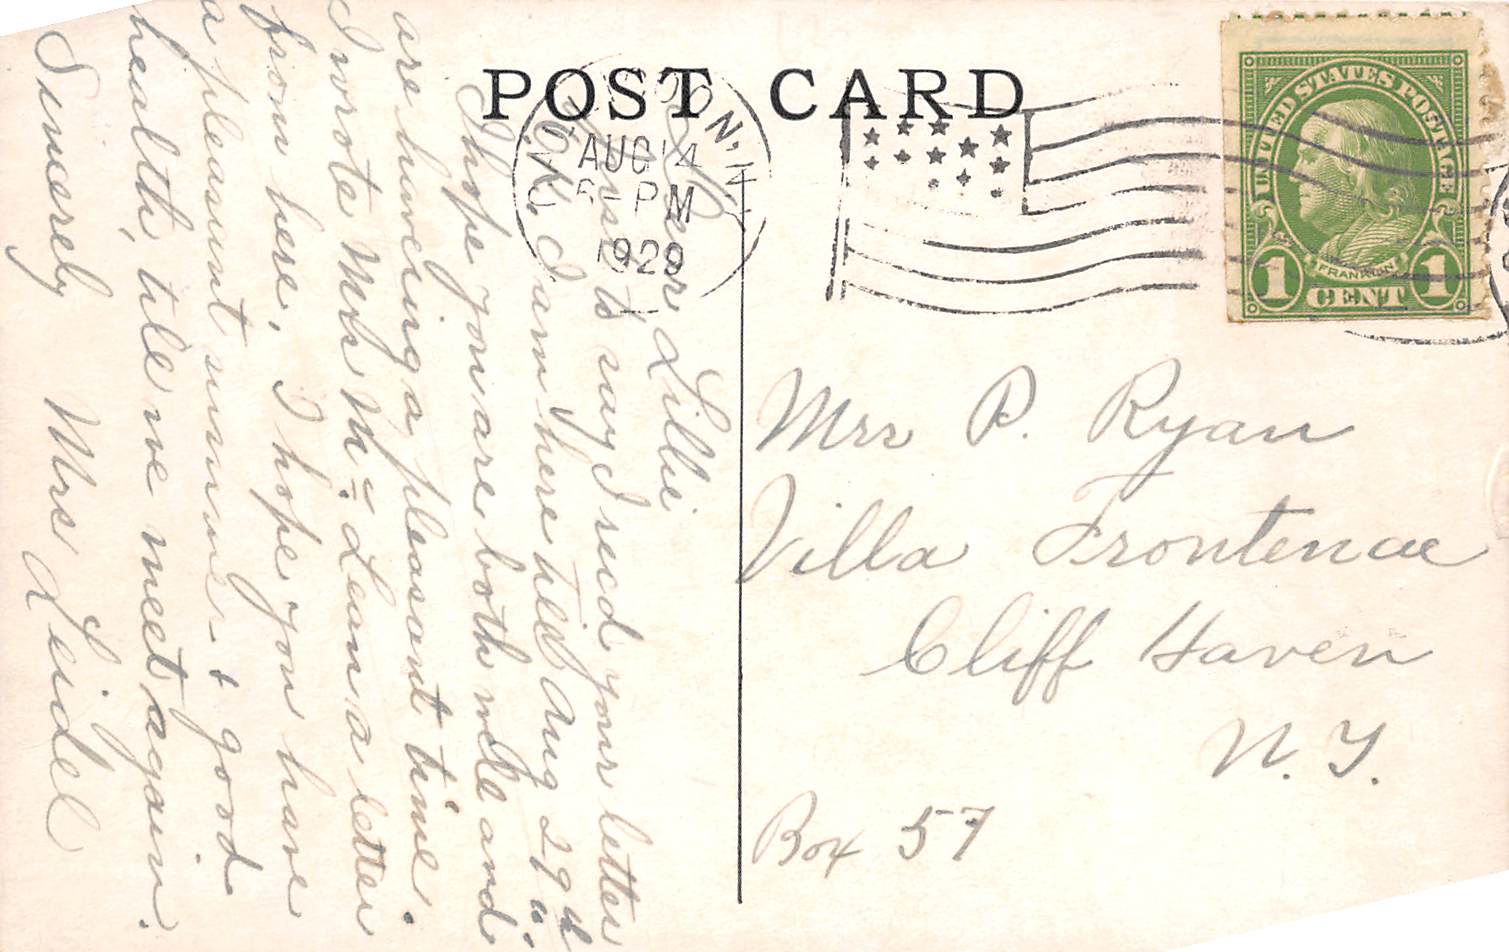 POST CARD
AUG 14
5-PM
1929
UNITED STATES POSTAGE
FRANKLIN
1 CENT 1
Dear Lillie
Just to say I recd your letter
O.K. I am here till Aug 29th
I hope you are both well and
are having a pleasant time.
I wrote Mrs Mc Lean a letter
from here, I hope you have
a pleasant summer & good
health, till we meet again.
Sincerely Mrs Leidel
Mrs P. Ryan
Villa Frontenac
Cliff Haven
N. Y.
Box 57